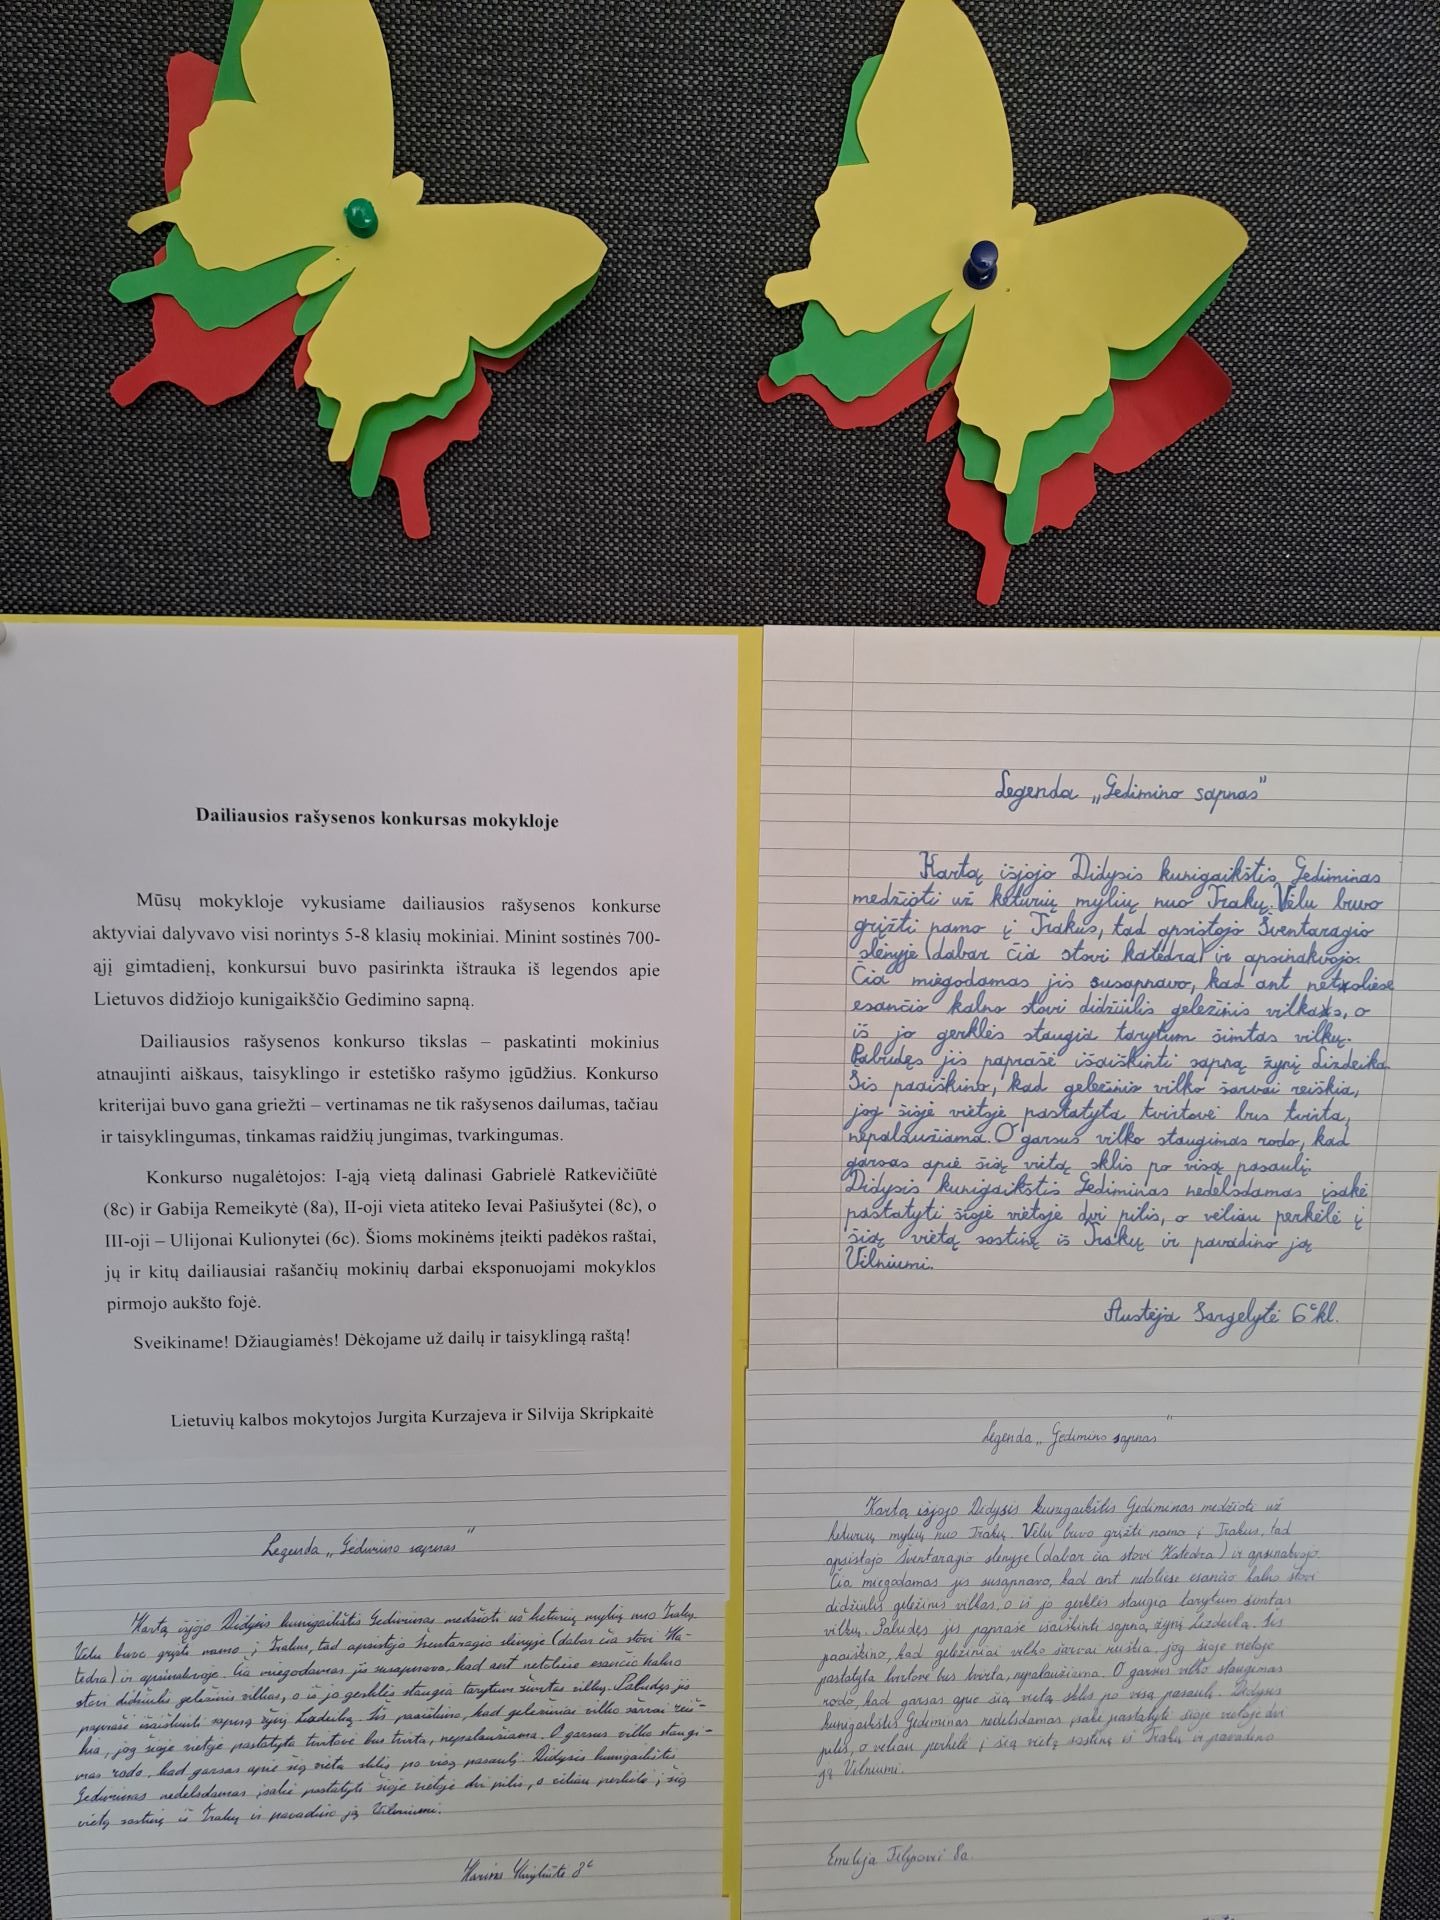 Dailiausios rašysenos konkursas mokykloje
Mūsų mokykloje vykusiame dailiausios rašysenos konkurse
aktyviai dalyvavo visi norintys 5-8 klasių mokiniai. Minint sostinės 700-
ąjį gimtadienį, konkursui buvo pasirinkta ištrauka iš legendos apie
Lietuvos didžiojo kunigaikščio Gedimino sapną.
Dailiausios rašysenos konkurso tikslas – paskatinti mokinius
atnaujinti aiškaus, taisyklingo ir estetiško rašymo įgūdžius. Konkurso
kriterijai buvo gana griežti – vertinamas ne tik rašysenos dailumas, tačiau
ir taisyklingumas, tinkamas raidžių jungimas, tvarkingumas.
Konkurso nugalėtojos: I-ąją vietą dalinasi Gabrielė Ratkevičiūtė
(8c) ir Gabija Remeikytė (8a), II-oji vieta atiteko Ievai Pašiušytei (8c), o
III-oji – Ulijonai Kulionytei (6c). Šioms mokinėms įteikti padėkos raštai,
jų ir kitų dailiausiai rašančių mokinių darbai eksponuojami mokyklos
pirmojo aukšto fojė.
Sveikiname! Džiaugiamės! Dėkojame už dailų ir taisyklingą raštą!
Lietuvių kalbos mokytojos Jurgita Kurzajeva ir Silvija Skripkaitė
Legenda „Gedimino sapnas"
Kartą išjojo Didysis kunigaikštis Gediminas
medžioti už keturių mylių nuo Trakų. Vėlu buvo
grįžti namo į Trakus, tad apsistojo Šventaragio
slėnyje (dabar čia stovi katedra) ir apsinakvojo.
Čia miegodamas jis susapnavo, kad ant netoliese
esančio kalno stovi didžiulis geležinis vilkas, o
iš jo gerklės staugia tarytum šimtas vilkų.
Pabudęs jis paprašė išaiškinti sapną žynį Lizdeiką.
Šis paaiškino, kad geležinio vilko šarvai reiškia,
jog šioje vietoje pastatyta tvirtovė bus tvirta,
nepalaužiama. O garsus vilko staugimas rodo, kad
garsas apie šią vietą sklis po visą pasaulį.
Didysis kunigaikštis Gediminas nedelsdamas įsakė
pastatyti šioje vietoje dvi pilis, o vėliau perkėlė į
šią vietą sostinę iš Trakų ir pavadino ją
Vilniumi.
Austėja Sargelytė 6c kl.
Legenda „Gedimino sapnas"
Kartą išjojo Didysis kunigaikštis Gediminas medžioti už keturių mylių nuo Trakų.
Vėlu buvo grįžti namo į Trakus, tad apsistojo Šventaragio slėnyje (dabar čia stovi Ka-
tedra) ir apsinakvojo. Čia miegodamas jis susapnavo, kad ant netoliese esančio kalno
stovi didžiulis geležinis vilkas, o iš jo gerklės staugia tarytum šimtas vilkų. Pabudęs jis
paprašė išaiškinti sapną žynį Lizdeiką. Šis paaiškino, kad geležiniai vilko šarvai reiš-
kia, jog šioje vietoje pastatyta tvirtovė bus tvirta, nepalaužiama. O garsus vilko staugi-
mas rodo, kad garsas apie šią vietą sklis po visą pasaulį. Didysis kunigaikštis
Gediminas nedelsdamas įsakė pastatyti šioje vietoje dvi pilis, o vėliau perkėlė į šią
vietą sostinę iš Trakų ir pavadino ją Vilniumi.
8c
Legenda „Gedimino sapnas"
Kartą išjojo Didysis kunigaikštis Gediminas medžioti už
keturių mylių nuo Trakų. Vėlu buvo grįžti namo į Trakus, tad
apsistojo Šventaragio slėnyje (dabar čia stovi Katedra) ir apsinakvojo.
Čia miegodamas jis susapnavo, kad ant netoliese esančio kalno stovi
didžiulis geležinis vilkas, o iš jo gerklės staugia tarytum šimtas
vilkų. Pabudęs jis paprašė išaiškinti sapną žynį Lizdeiką. Šis
paaiškino, kad geležiniai vilko šarvai reiškia jog šioje vietoje
pastatyta tvirtovė bus tvirta, nepalaužiama. O garsus vilko staugimas
rodo, kad garsas apie šią vietą sklis po visą pasaulį. Didysis
kunigaikštis Gediminas nedelsdamas įsakė pastatyti šioje vietoje dvi
pilis, o vėliau perkėlė į šią vietą sostinę iš Trakų ir pavadino
ją Vilniumi.
Emilija 8a.